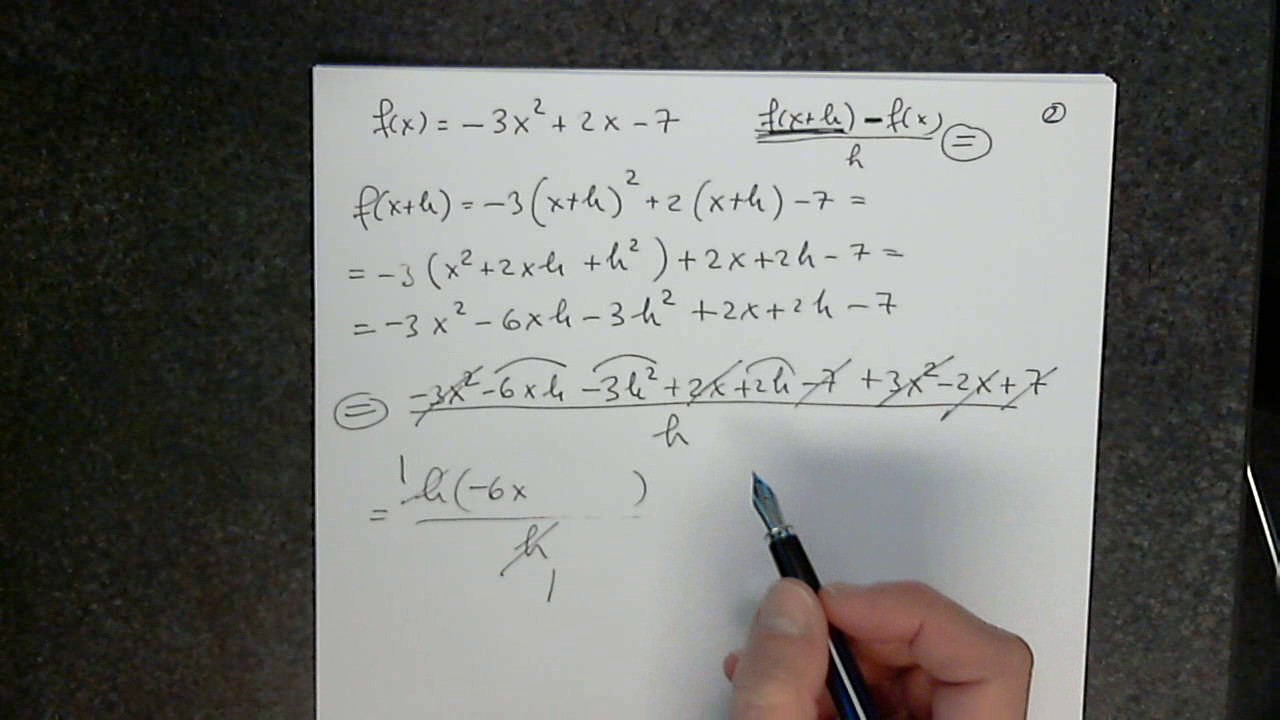 f(x) = -3x² + 2x - 7 f(x+h) - f(x) / h = ②
f(x+h) = -3(x+h)² + 2(x+h) - 7 =
= -3(x² + 2xh + h²) + 2x + 2h - 7 =
= -3x² - 6xh - 3h² + 2x + 2h - 7
= -3x² - 6xh - 3h² + 2x + 2h - 7 + 3x² - 2x + 7
h
1
= h(-6x )
h
1